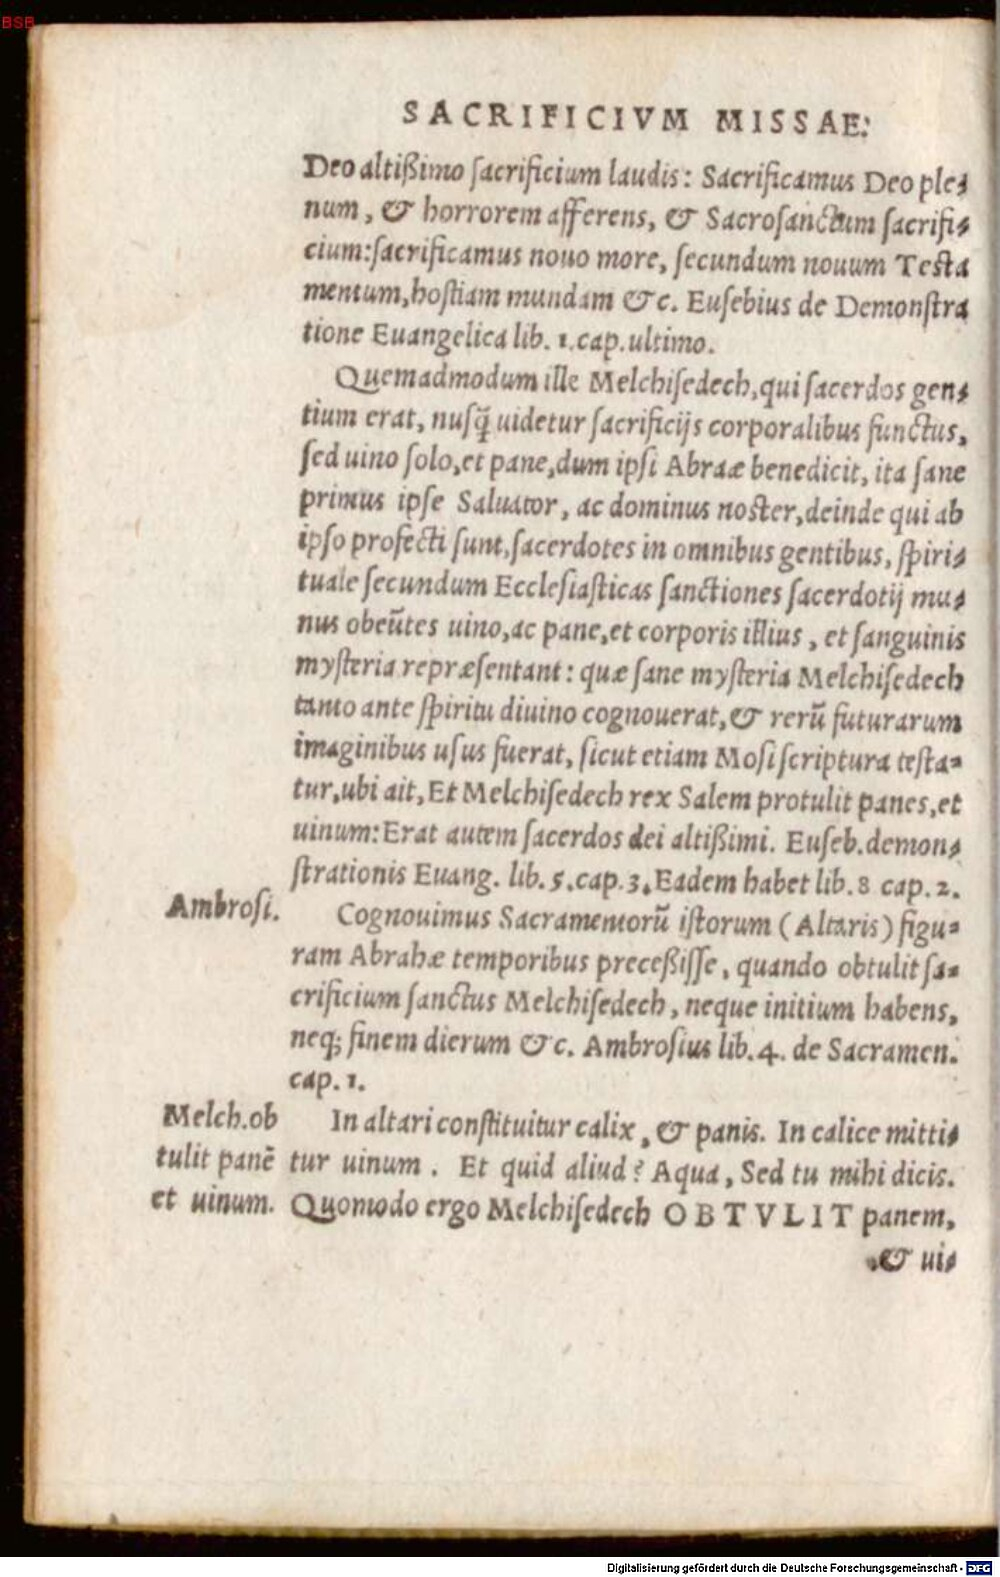 BSB
SACRIFICIVM MISSAE:
Deo altißimo ſacrificium laudis: Sacrificamus Deo ple⸗
num, & horrorem afferens, & Sacroſanctum ſacrifi⸗
cium: ſacrificamus nouo more, ſecundum nouum Teſta
mentum, hoſtiam mundam &c. Euſebius de Demonſtra
tione Euangelica lib. 1. cap. ultimo.
Quemadmodum ille Melchiſedech, qui ſacerdos gen⸗
tium erat, nuſq̃ uidetur ſacrificijs corporalibus functus,
ſed uino ſolo, et pane, dum ipſi Abraæ benedicit, ita ſane
primus ipſe Saluator, ac dominus noſter, deinde qui ab
ipſo profecti ſunt, ſacerdotes in omnibus gentibus, ſpiri⸗
tuale ſecundum Eccleſiaſticas ſanctiones ſacerdotij mu⸗
nus obeũtes uino, ac pane, et corporis illius, et ſanguinis
myſteria repræſentant: quæ ſane myſteria Melchiſedech
tanto ante ſpiritu diuino cognouerat, & rerũ futurarum
imaginibus uſus fuerat, ſicut etiam Moſi ſcriptura teſta⸗
tur, ubi ait, Et Melchiſedech rex Salem protulit panes, et
uinum: Erat autem ſacerdos dei altißimi. Euſeb. demon⸗
ſtrationis Euang. lib. 5. cap. 3. Eadem habet lib. 8 cap. 2.
Ambroſi.
Cognouimus Sacramentorũ iſtorum (Altaris) figu⸗
ram Abrahæ temporibus preceßiſſe, quando obtulit ſa⸗
crificium ſanctus Melchiſedech, neque initium habens,
neq; finem dierum &c. Ambroſius lib. 4. de Sacramen.
cap. 1.
Melch. ob
tulit panẽ
et uinum.
In altari conſtituitur calix, & panis. In calice mitti⸗
tur uinum. Et quid aliud? Aqua, Sed tu mihi dicis.
Quomodo ergo Melchiſedech OBTVLIT panem,
& ui⸗
Digitalisierung gefördert durch die Deutsche Forschungsgemeinschaft - DFG